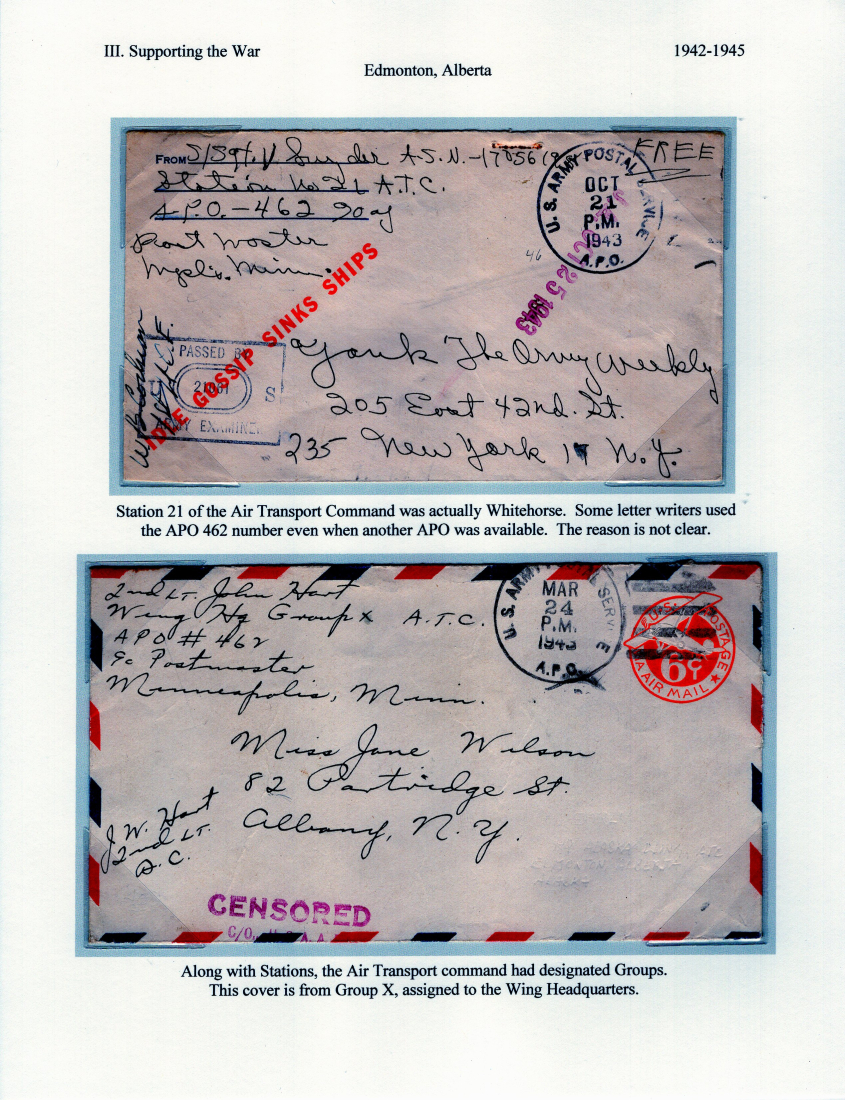 III. Supporting the War 1942-1945
Edmonton, Alberta
FROM S/Sgt. V Snyder A.S.N.-
Station No 21 A.T.C.
A.P.O.-462
Mpls. Minn.
FREE
U.S. ARMY POSTAL SERVICE
OCT
21
P.M.
1943
A.P.O.
OCT 25 1943
46
IDLE GOSSIP SINKS SHIPS
PASSED BY
U S
ARMY EXAMINER
Yank The Army Weekly
205 East 42nd. St.
235 New York 17 N.Y.
Station 21 of the Air Transport Command was actually Whitehorse. Some letter writers used
the APO 462 number even when another APO was available. The reason is not clear.
2nd LT. John Hart
Wing Hq Group X A.T.C.
APO # 462
℅ Postmaster
Minneapolis, Minn.
U.S. ARMY POSTAL SERVICE
MAR
24
P.M.
1943
A.P.O.
U.S. POSTAGE
6¢
VIA AIR MAIL
Miss Jane Wilson
82 Partridge St.
Albany, N.Y.
J.W. Hart
2nd LT.
A.C.
CENSORED
Along with Stations, the Air Transport command had designated Groups.
This cover is from Group X, assigned to the Wing Headquarters.